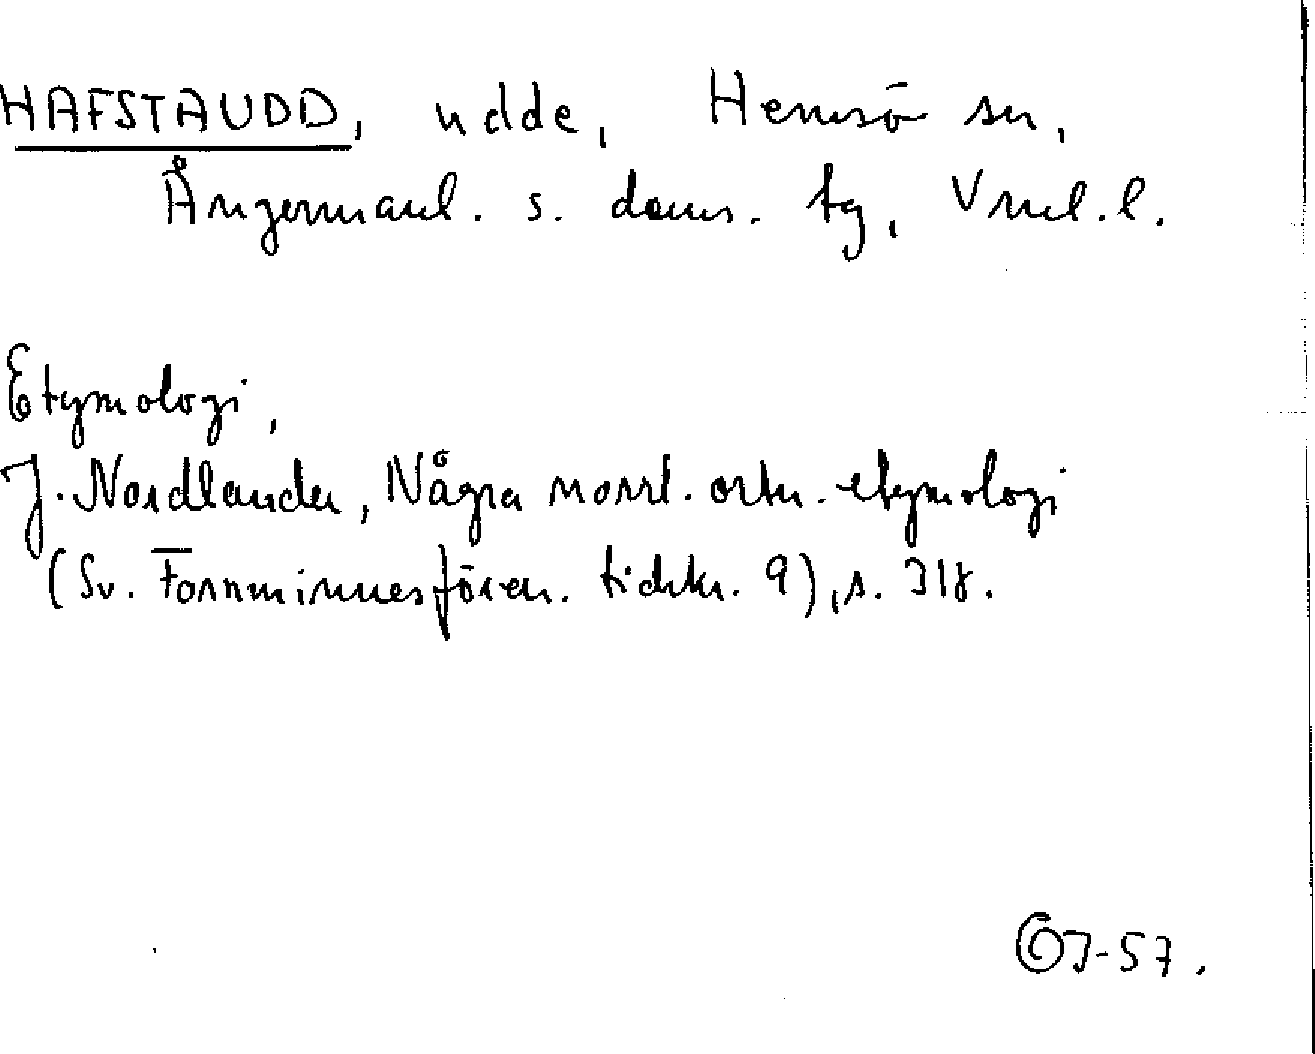 HAFSTAUDD, udde, Hemsö sn,
Ångermanl. s. doms. tg, Vnrl. l.
Etymologi,
J. Nordlander, Några norrl. ortn. etymologi
(Sv. Fornminnesfören. tidskr. 9), s. 318.
ÖJ-57.